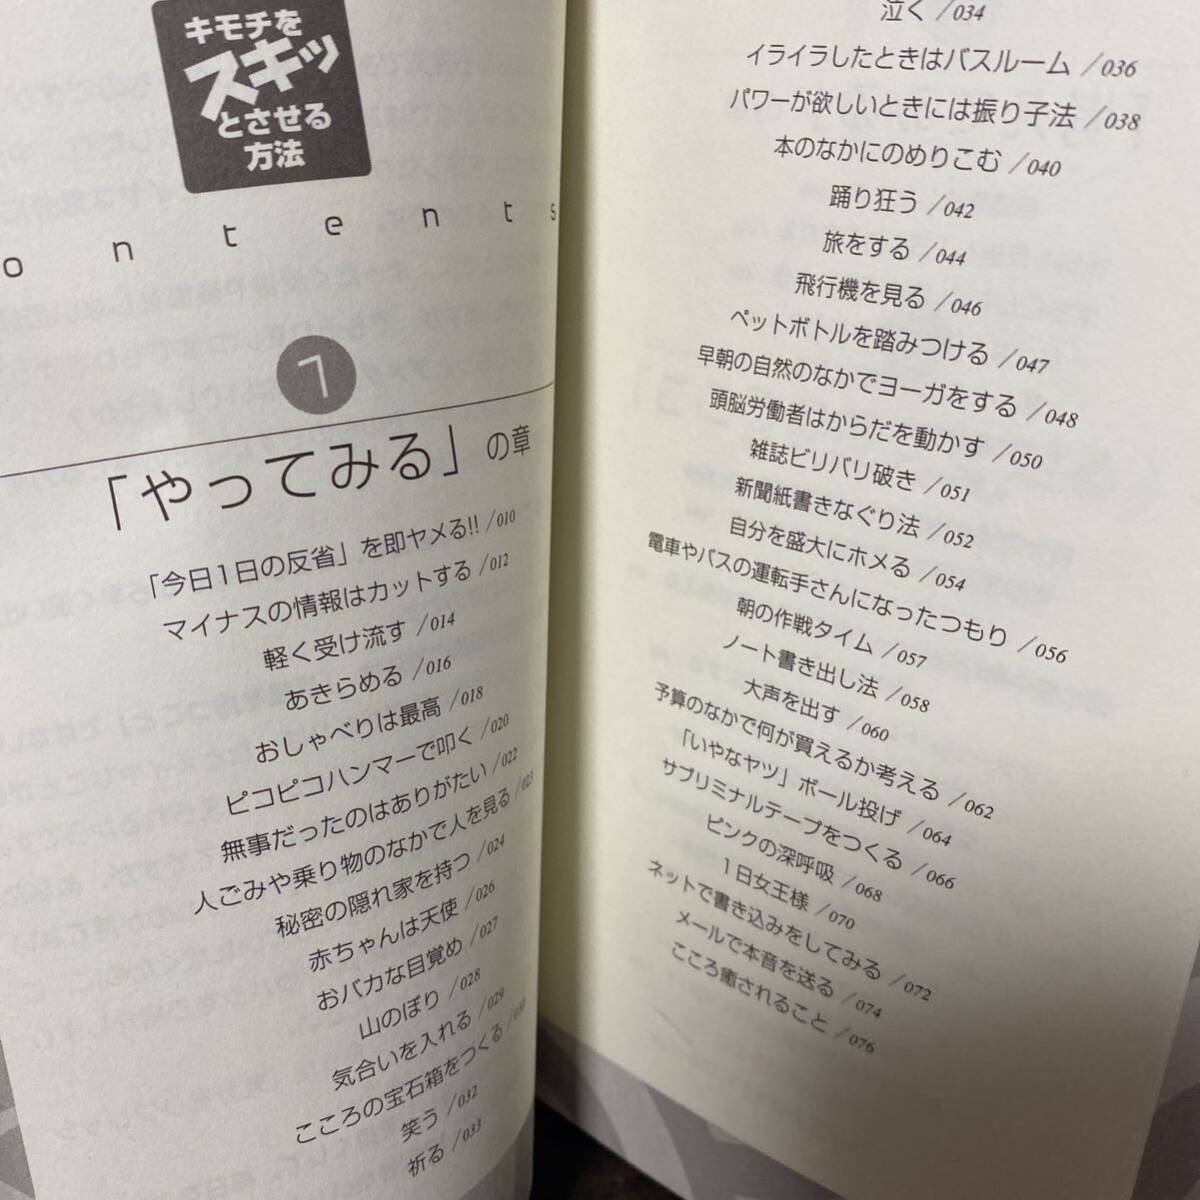 キモチを
スキッ
とさせる
方法
ontents
1
「やってみる」の章
「今日1日の反省」を即ヤメる!! /010
マイナスの情報はカットする /012
軽く受け流す /014
あきらめる /016
おしゃべりは最高 /018
ピコピコハンマーで叩く /020
無事だったのはありがたい /022
人ごみや乗り物のなかで人を見る /023
秘密の隠れ家を持つ /024
赤ちゃんは天使 /026
おバカな目覚め /027
山のぼり /028
気合いを入れる /029
こころの宝石箱をつくる /030
笑う /032
祈る /033
泣く /034
イライラしたときはバスルーム /036
パワーが欲しいときには振り子法 /038
本のなかにのめりこむ /040
踊り狂う /042
旅をする /044
飛行機を見る /046
ペットボトルを踏みつける /047
早朝の自然のなかでヨーガをする /048
頭脳労働者はからだを動かす /050
雑誌ビリバリ破き /051
新聞紙書きなぐり法 /052
自分を盛大にホメる /054
電車やバスの運転手さんになったつもり /056
朝の作戦タイム /057
ノート書き出し法 /058
大声を出す /060
予算のなかで何が買えるか考える /062
「いやなヤツ」ボール投げ /064
サブリミナルテープをつくる /066
ピンクの深呼吸 /068
1日女王様 /070
ネットで書き込みをしてみる /072
メールで本音を送る /074
こころ癒されること /076